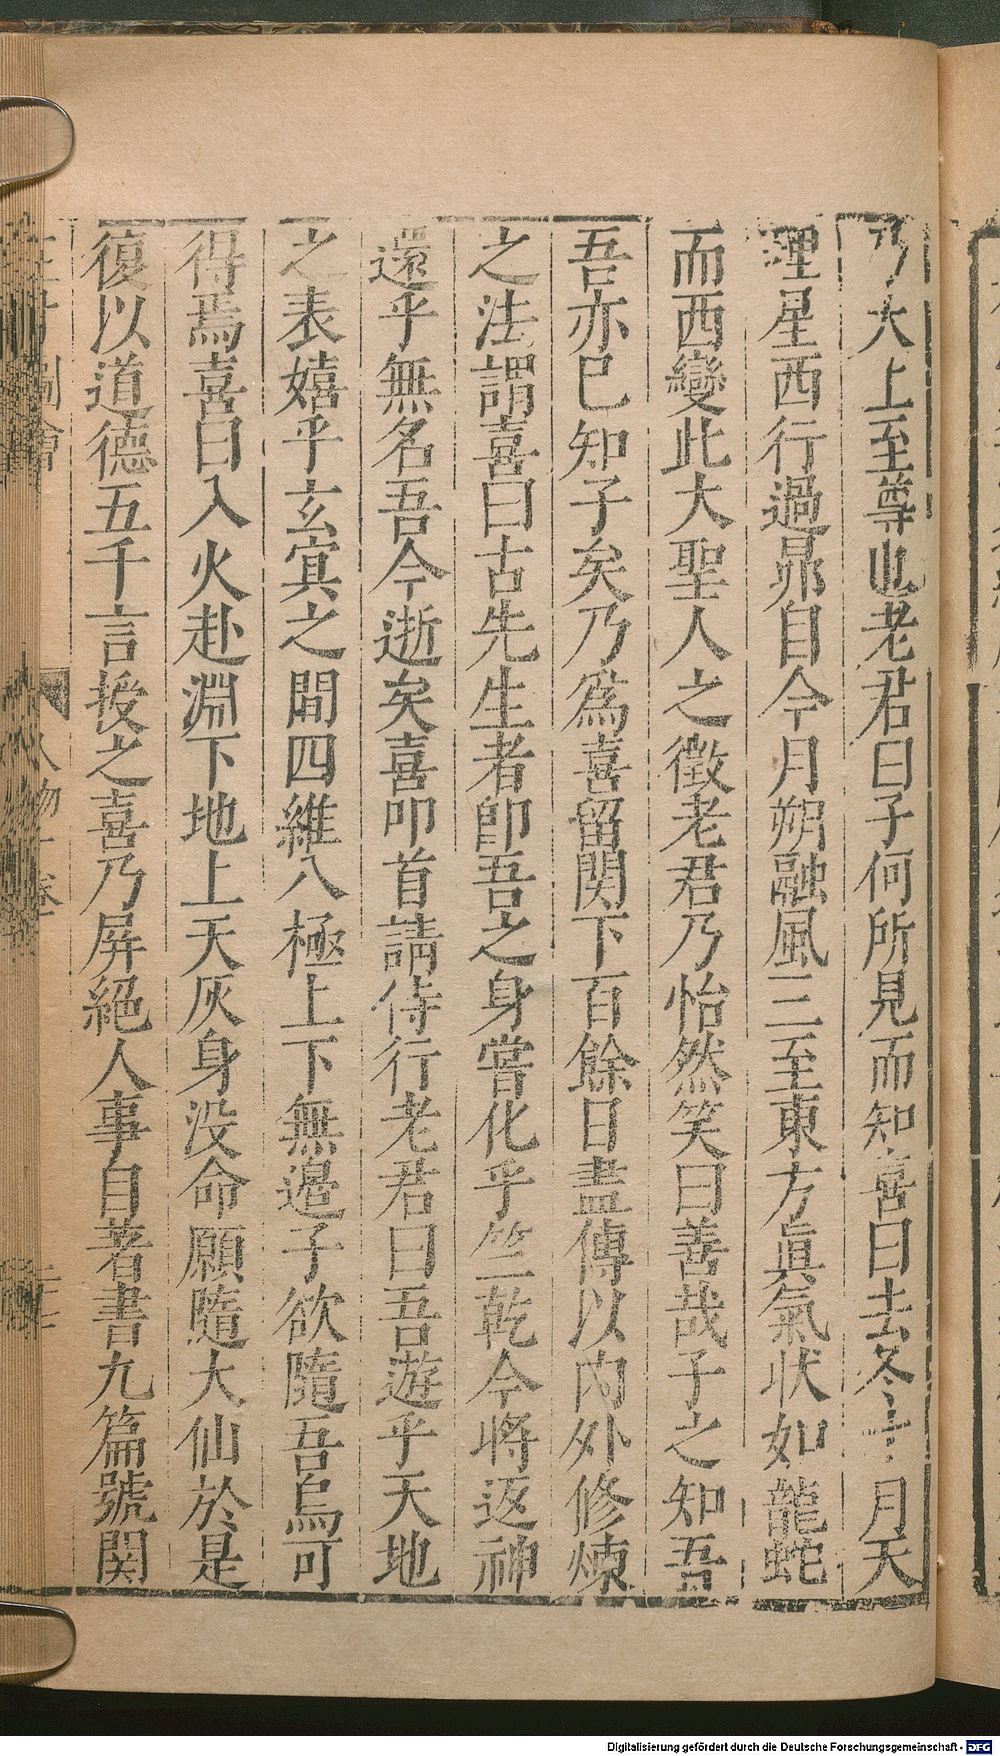 乃大上至尊也老君曰子何所見而知喜曰去冬十月天
理星西行過昴自今月朔融風三至東方真氣状如龍蛇
而西變此大聖人之徵老君乃怡然笑曰善哉子之知吾
吾亦已知子矣乃為喜留関下百餘日盡傳以内外修煉
之法謂喜曰古先生者即吾之身嘗化乎竺乾今將返神
還乎無名吾今逝矣喜叩首請侍行老君曰吾遊乎天地
之表嬉乎玄冥之間四維八極上下無邊子欲隨吾烏可
得焉喜曰入火赴淵下地上天灰身没命願隨大仙於是
復以道德五千言授之喜乃屏絕人事自著書九篇號関
圖會
人物十卷
Digitalisierung gefördert durch die Deutsche Forschungsgemeinschaft - DFG